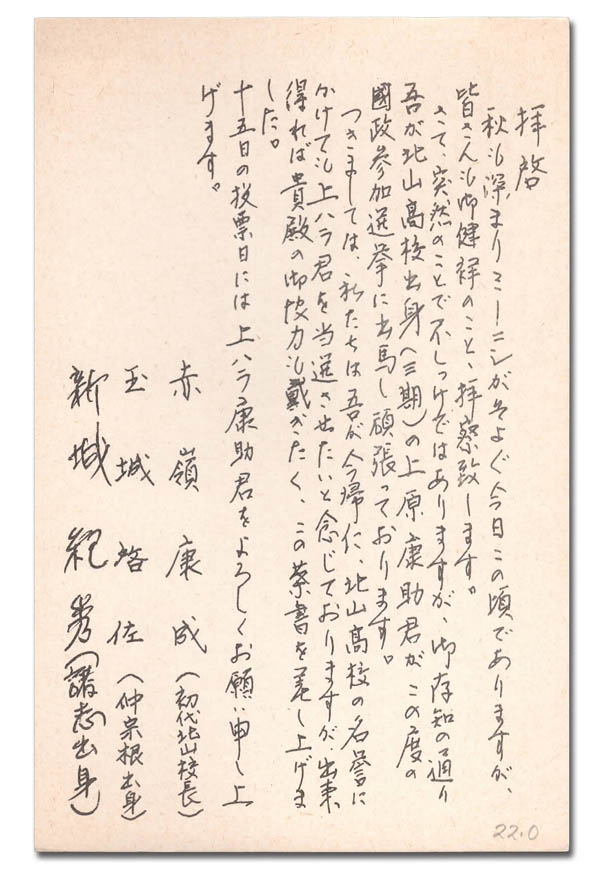 拝啓
秋も深まりミーニシがそよぐ今日この頃でありますが、
皆さんも御健祥のこと、拝察致します。
さて、突然のことで不しつけではありますが、御存知の通り
吾が北山高校出身（三期）の上原康助君がこの度の
國政参加選挙に出馬し頑張っております。
つきましては、私たちは吾が今帰仁、北山高校の名誉に
かけても上ハラ君を当選させたいと念じておりますが、出来
得れば貴殿の御協力も戴きたく、この葉書を差し上げま
した。
十五日の投票日には上ハラ康助君をよろしくお願い申し上
げます。
赤嶺康成（初代北山校長）
玉城 佐（仲宗根出身）
新城紀秀（諸志出身）
22.0